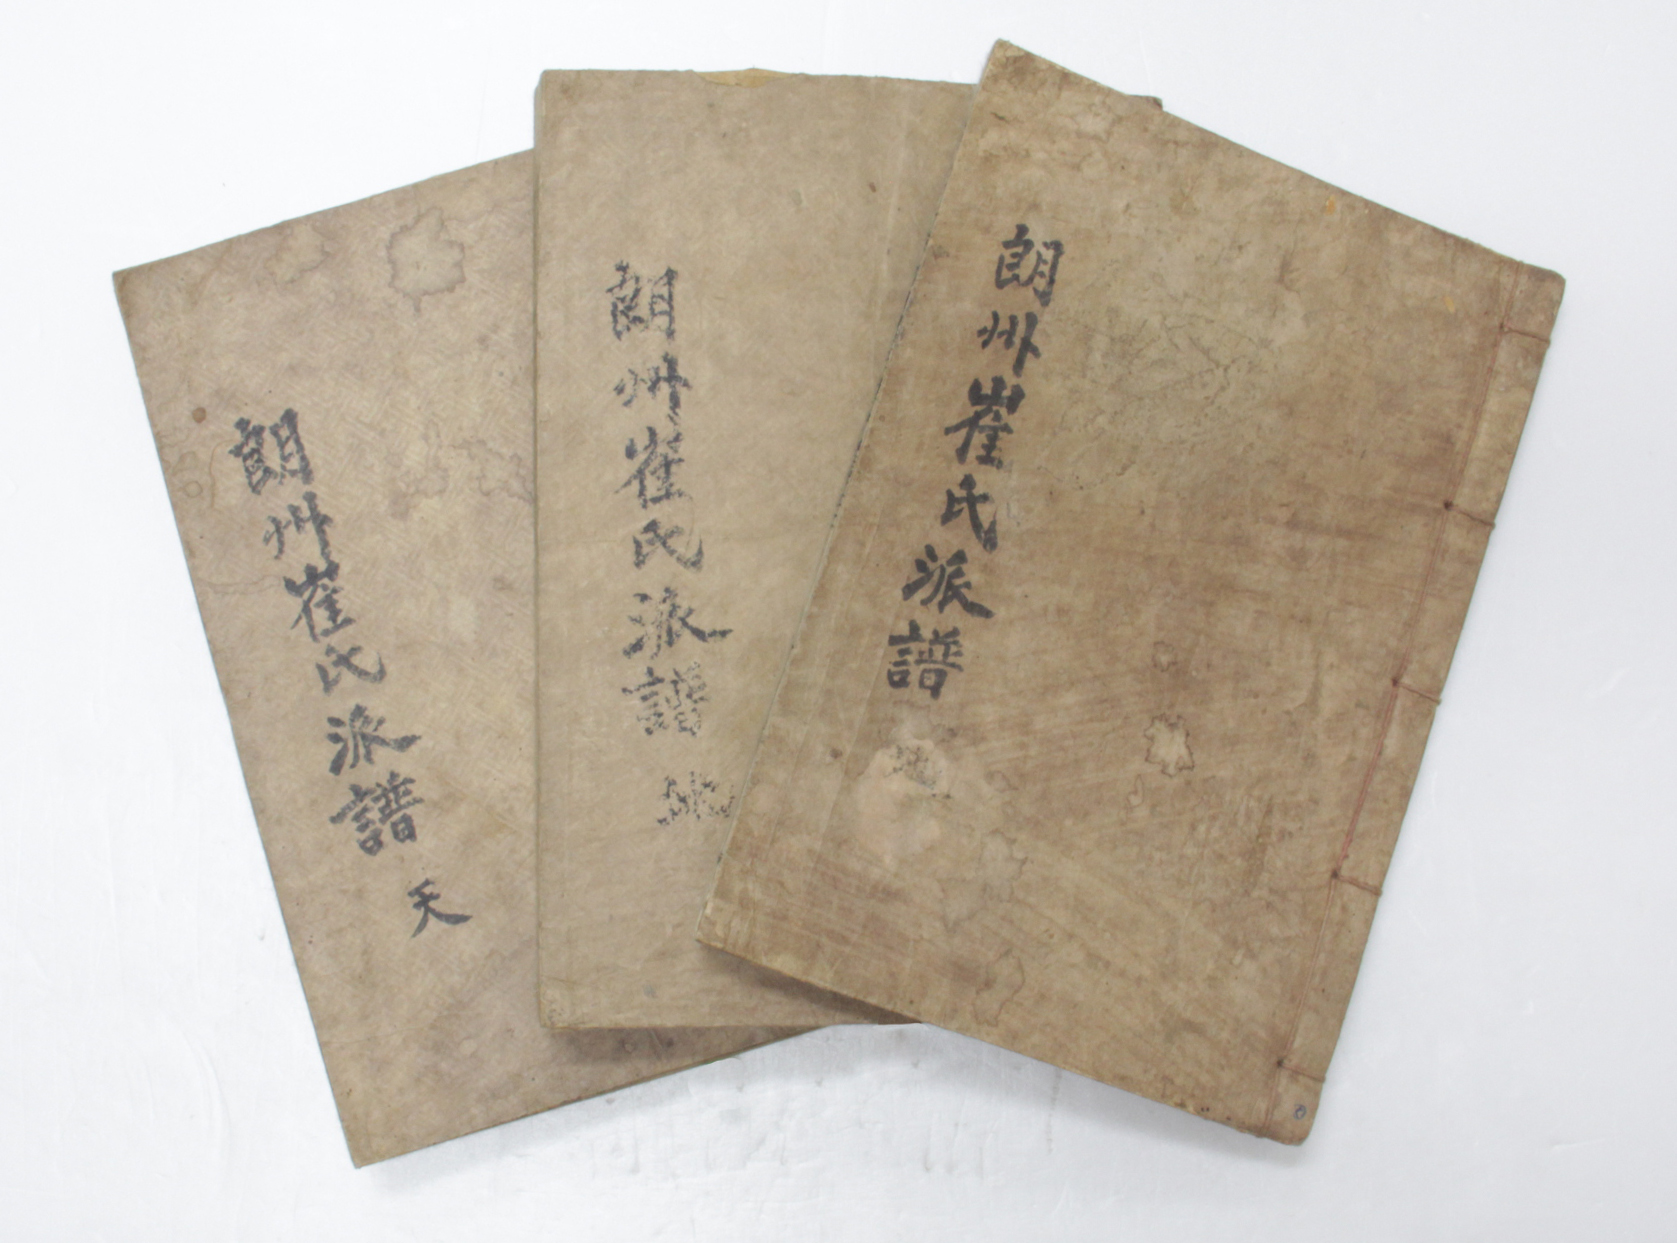 朗州崔氏派譜 天
朗州崔氏派譜 地
朗州崔氏派譜